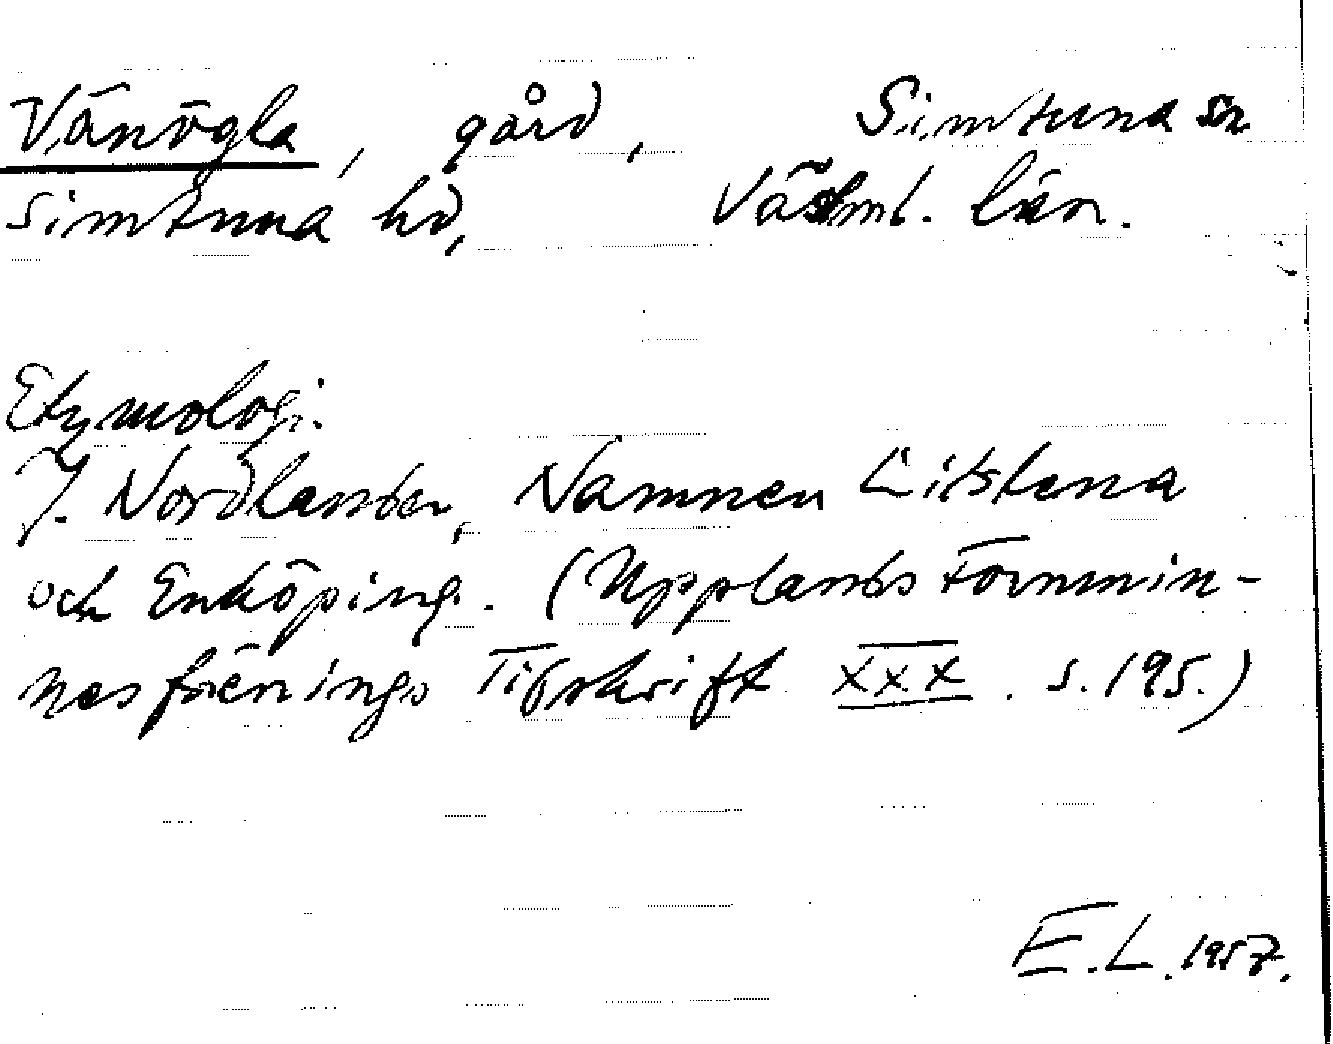 Vänögla, gård, Simtuna sn
Simtuna hd, Västml. län.
Etymologi.
J. Nordlander, Namnen Litslena
och Enköping. (Upplands Fornmin-
nesförenings Tidskrift XXX. s. 195.)
E.L. 1957.